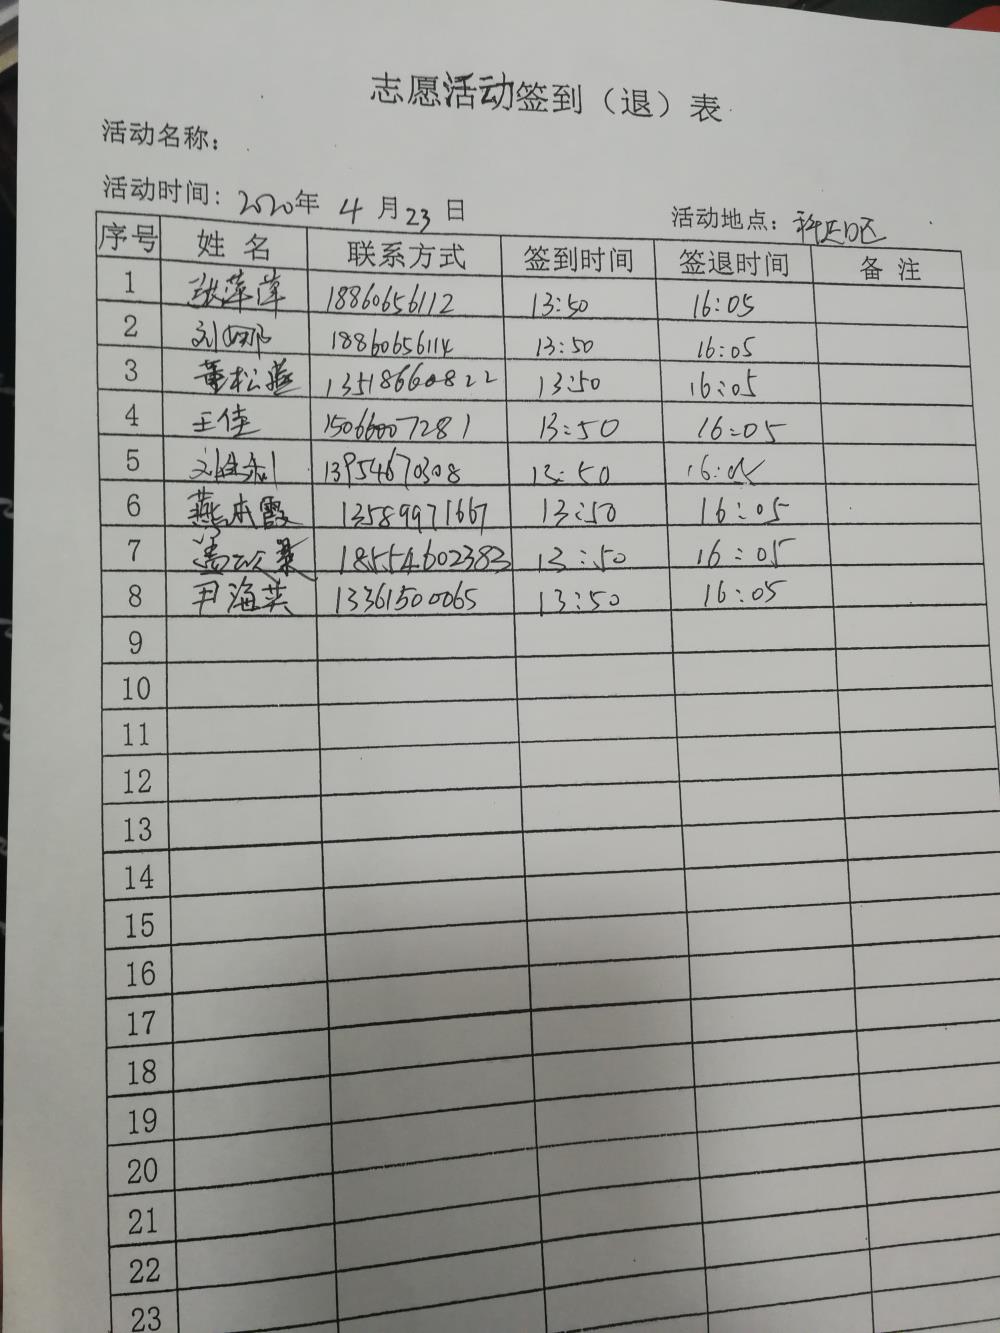 志愿活动签到（退）表
活动名称：
活动时间：2020年 4 月 23 日 活动地点：
序号 姓 名 联系方式 签到时间 签退时间 备 注
1 张萍萍 18860656112 13:50 16:05
2 刘娜 18860656114 13:50 16:05
3 董松 13518660822 13:50 16:05
4 王佳 15066007281 13:50 16:05
5 刘 13954670308 13:50 16:05
6 燕本霞 13589971667 13:50 16:05
7 18554602383 13:50 16:05
8 尹海英 13361500065 13:50 16:05
9
10
11
12
13
14
15
16
17
18
19
20
21
22
23